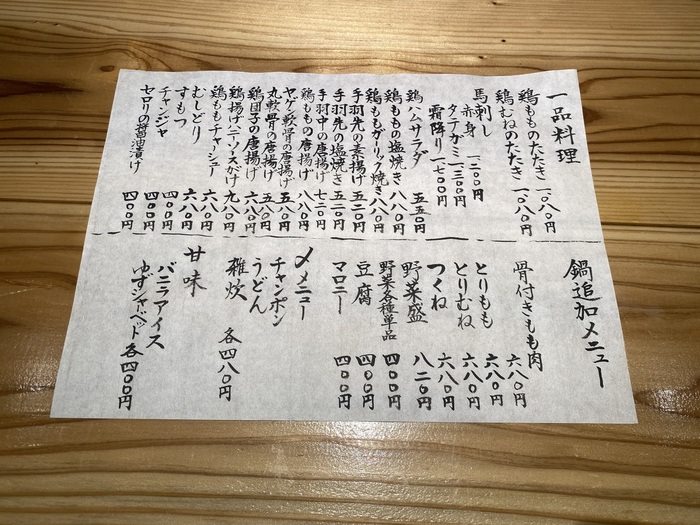 一品料理
鶏もものたたき 一、〇八〇円
鶏むねのたたき 一、〇八〇円
馬刺し
赤身 一二〇〇円
タテガミ 一三〇〇円
霜降り 一七〇〇円
鶏ハムサラダ 五五〇円
鶏ももの塩焼き 八八〇円
鶏ももガーリック焼き 八八〇円
手羽先の素揚げ 五二〇円
手羽先の塩焼き 五二〇円
手羽中の唐揚げ 七二〇円
鶏ももの唐揚げ 八八〇円
ヤゲン軟骨の唐揚げ 五八〇円
丸軟骨の唐揚げ 五八〇円
鶏団子の唐揚げ 六八〇円
鶏揚げハニーソースがけ 九八〇円
鶏ももチャーシュー 六八〇円
むしどり 六八〇円
すもつ 四〇〇円
チャンジャ 四〇〇円
セロリの醤油漬け 四〇〇円
鍋追加メニュー
骨付きもも肉 六八〇円
とりもも 六八〇円
とりむね 六八〇円
つくね 六八〇円
野菜盛 八二〇円
野菜各種単品 四〇〇円
豆腐 四〇〇円
マロニー 四〇〇円
〆メニュー
チャンポン
うどん
雑炊 各四八〇円
甘味
バニラアイス
ゆずシャーベット 各四〇〇円